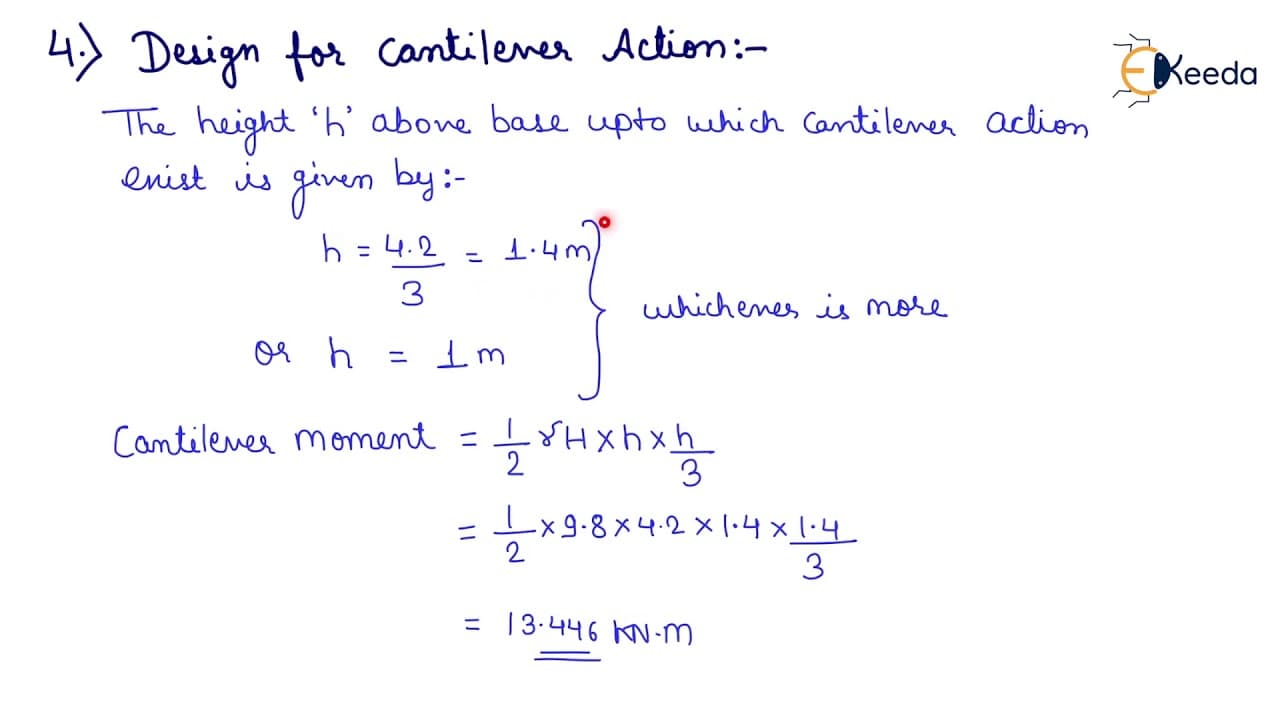 4.) Design for Cantilever Action:-
EKeeda
The height 'h' above base upto which cantilever action
exist is given by:-
h = 4.2/3 = 1.4m
or h = 1m } whichever is more
Cantilever moment = 1/2 γH × h × h/3
= 1/2 × 9.8 × 4.2 × 1.4 × 1.4/3
= 13.446 KN.m